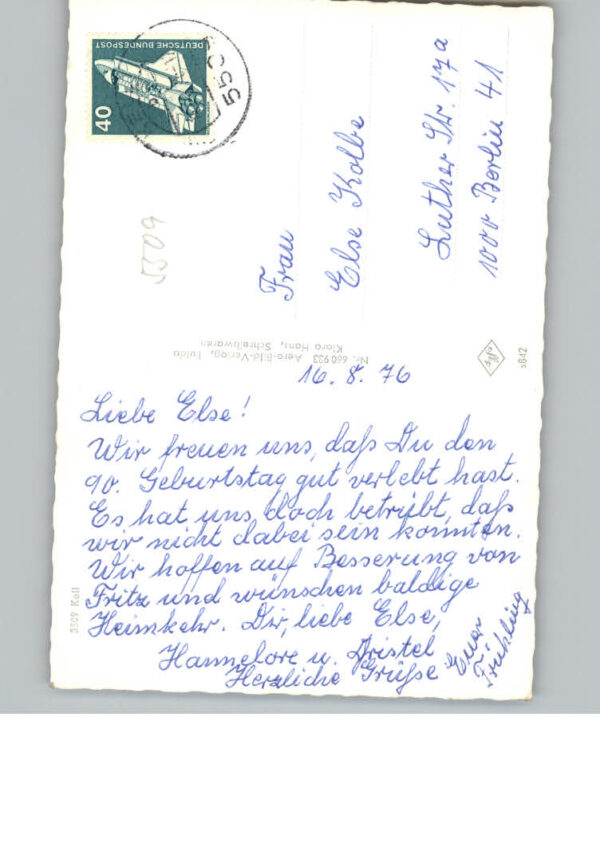 DEUTSCHE BUNDESPOST
40
550
5509
Frau
Else Kolbe
Luther Str. 17a
1000 Berlin 41
Nr. 660 933 Aero-Bild-Verlag, Fulda
Klara Hans, Schreibwaren
Agfa
s842
5509 Kell
16. 8. 76
Liebe Else!
Wir freuen uns, daß Du den
90. Geburtstag gut verlebt hast.
Es hat uns doch betrübt, daß
wir nicht dabei sein konnten.
Wir hoffen auf Besserung von
Fritz und wünschen baldige
Heimkehr. Dir, liebe Else,
Hannelore u. Christel
Herzliche Grüße Euer
Frühling